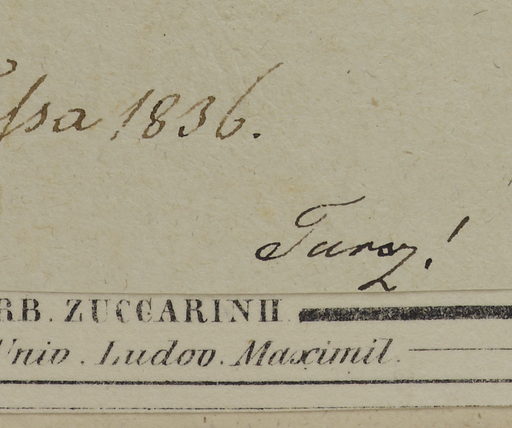 1836.
Turcz!
RB. ZUCCARINII
Univ. Ludov. Maximil.